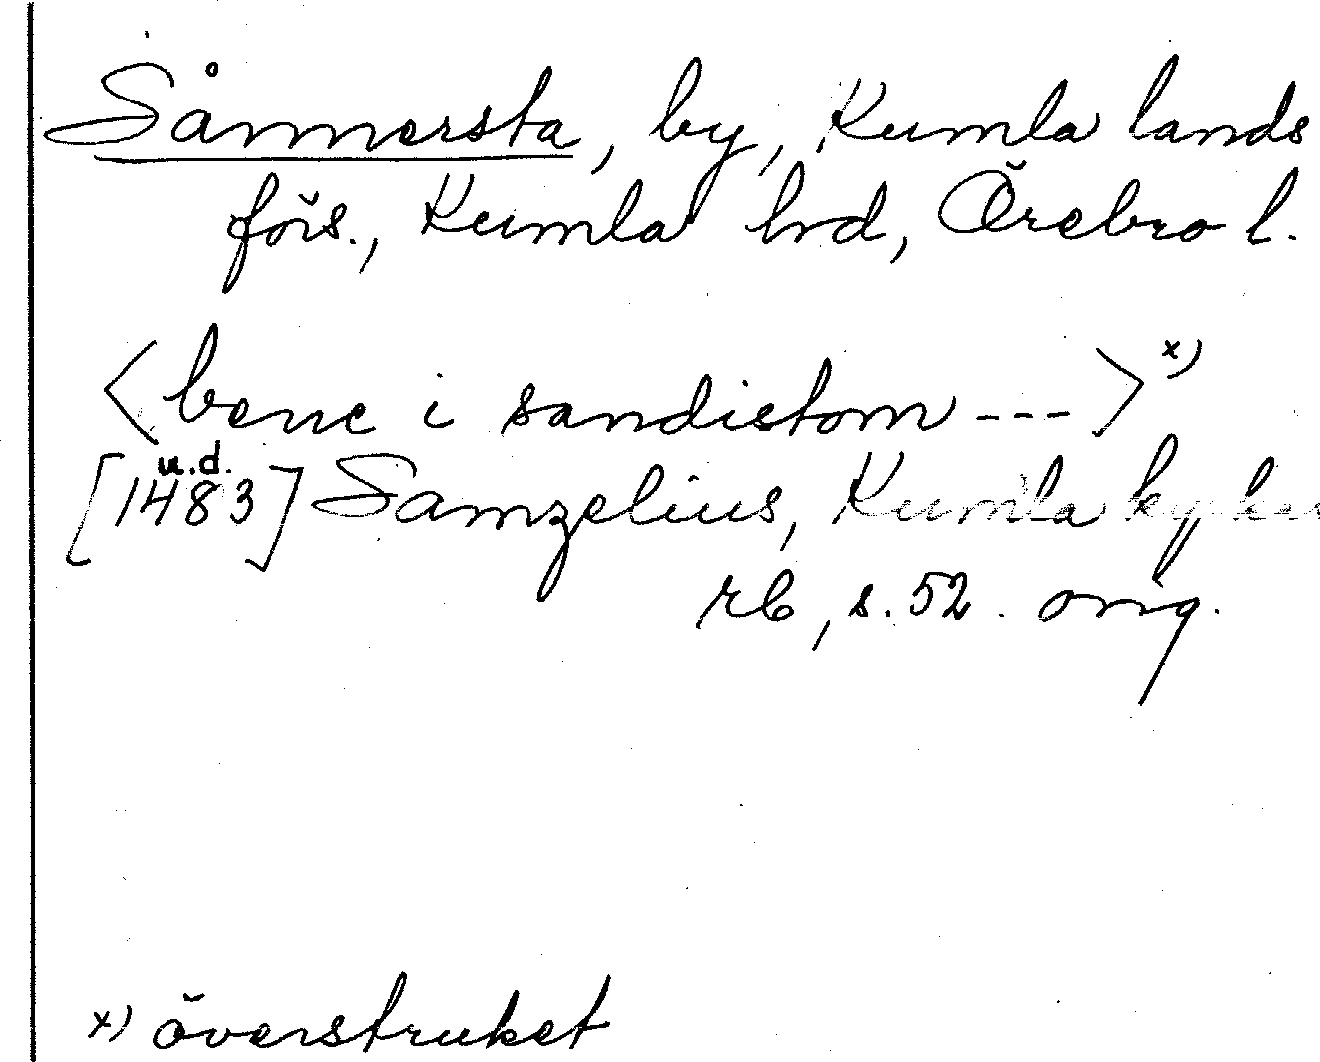 Sånnersta, by, Kumla lands
förs., Kumla hrd, Örebro l.
<bene i sandistom --->x)
u.d.
[1483] Samzelius, Kumla kyrkas
rb, s. 52. orig.
x) överstruket